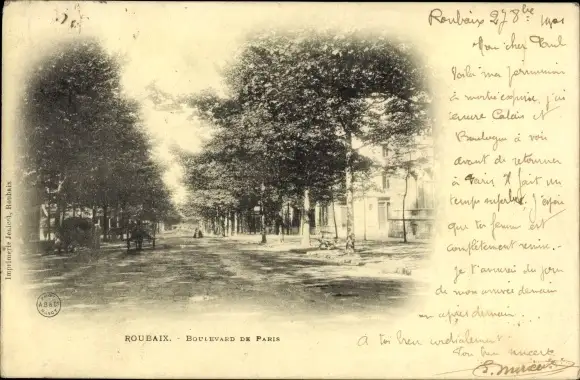 Roubaix 27 8bre 1901
Mon cher Paul
Voilà ma
à moitié j'ai
encore Calais et
Boulogne à voir
avant de retourner
à Paris. Il fait un
temps superbe. J'espère
que ta femme est
complètement remise.-
Je t'aviserai du jour
de mon arrivée demain
ou après demain.
A toi bien cordialement
Ton bien sincère
Imprimerie Roubaix
ROUBAIX. - BOULEVARD DE PARIS